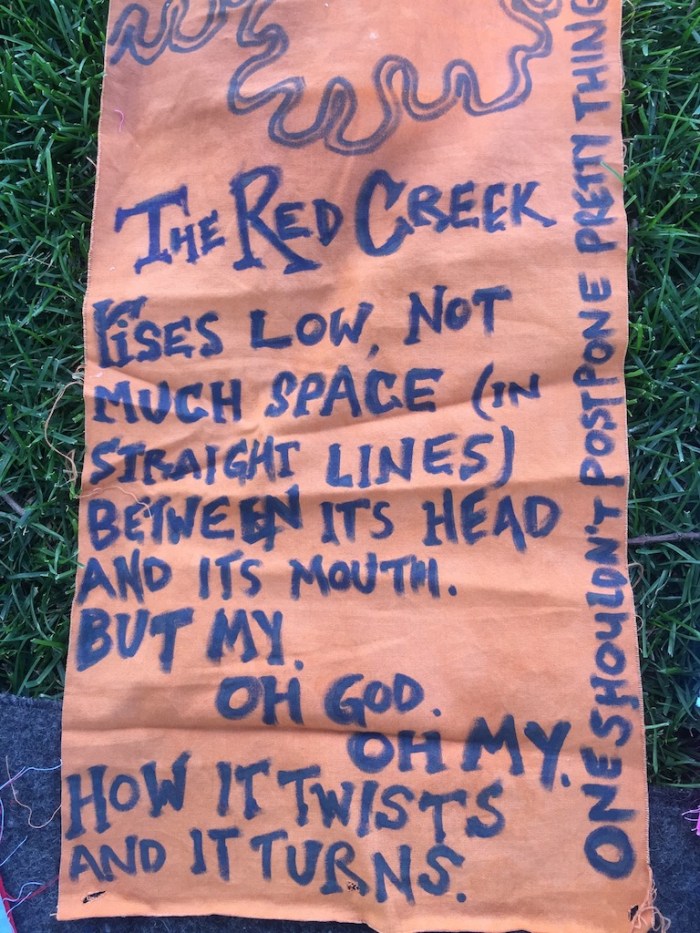 THE RED CREEK
riSES LOW, NOT
MUCH SPACE (IN
STRAIGHT LINES)
BETWEEN ITS HEAD
AND ITS MOUTH.
BUT MY.
OH GOD.
OH MY.
HOW IT TWISTS
AND IT TURNS.
ONE SHOULDN'T POSTPONE PRETTY THING